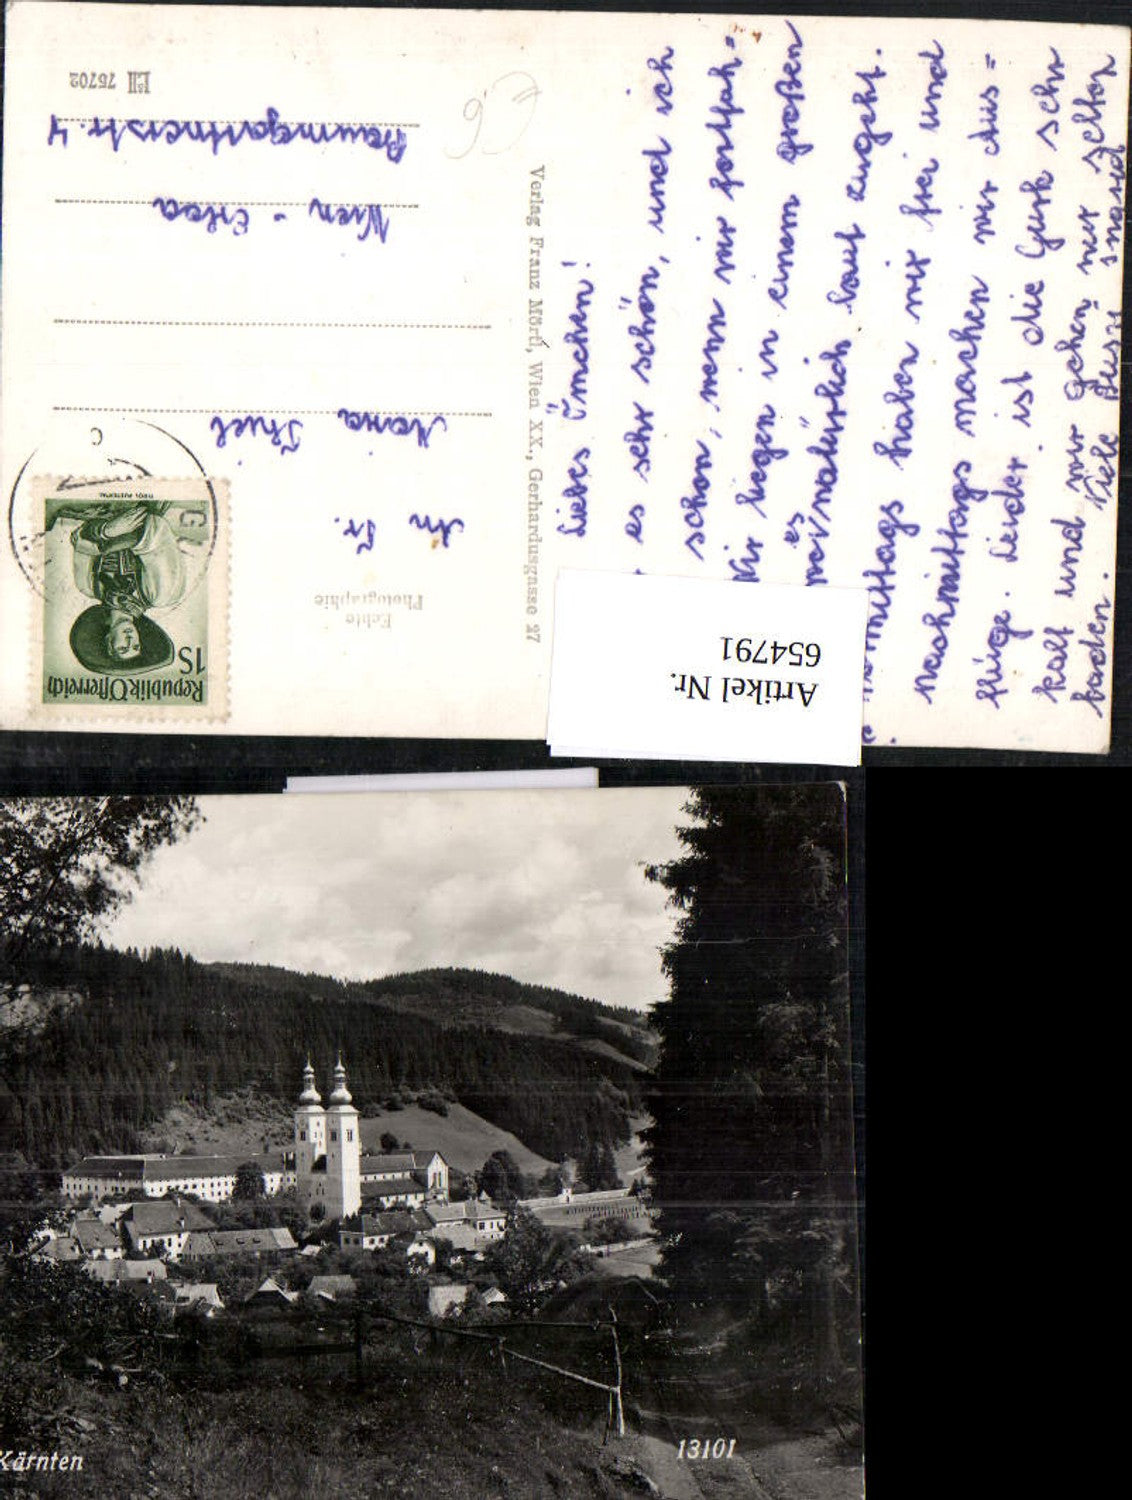 Liebes Ömchen!
es sehr schön, und ich
schon, wenn wir fortfah=
Wir liegen in einem großen
es
natürlich laut zugeht.
vormittags haben wir frei und
nachmittags machen wir Aus=
flüge. Leider ist die Gurk sehr
kalt und wir gehen nur selten
baden. Viele Bussi
Verlag Franz Mörtl, Wien XX., Gerhardusgasse 27
Echte
Photographie
An Fr.
Maria Thiel
Wien - Erlaa
Baumgartnerstr. 4
LII 75702
Republik Österreich
1S
G
C
Artikel Nr.
654791
Kärnten
13101